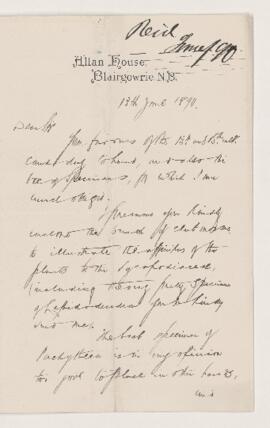 Reid
June/90
Allan House.
Blairgowrie N.B.
18th June 1890.
Dear Sir
Your favours of the 12th and 15th inst.
came duly to hand, as also the
box of Specimens, for which I am
much obliged.
I presume you kindly
enclosed the branch of club moss
to illustrate the affinities of the
plants to the Lycopodiaceae,
including the very pretty Specimen
of Lepidodendron you so kindly
sent me.
The best specimen of
Pachytheca is in my opinion
too good to place in other hands,
and